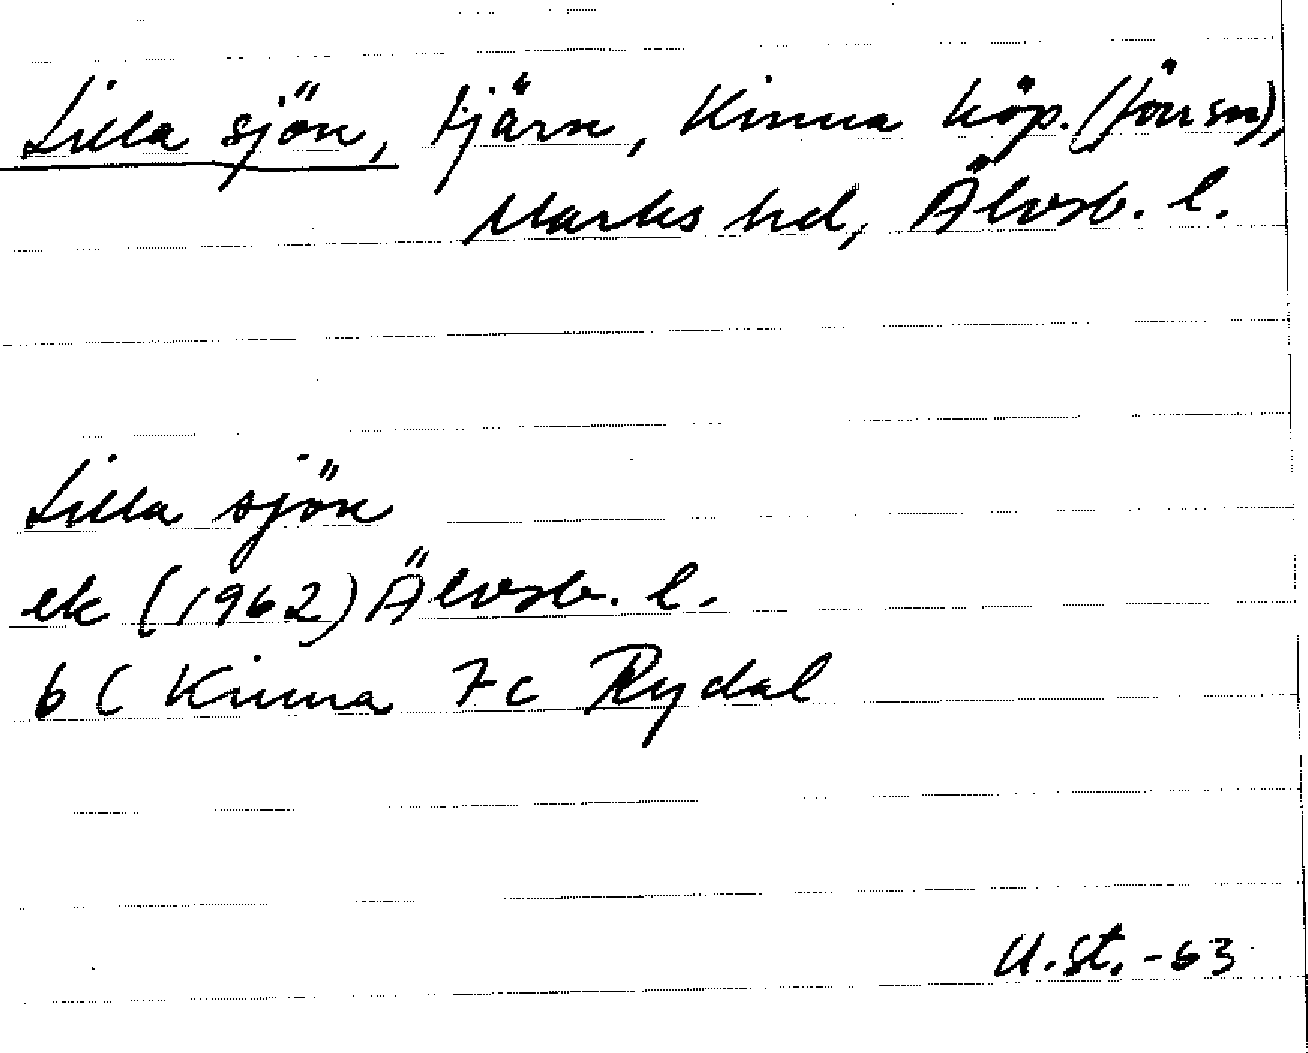 Lilla sjön, tjärn, Kinna köp. (förr sn),
Marks hd, Älvsb. l.
Lilla sjön
ek (1962) Älvsb. l.
6 C Kinna 7 c Rydal
U.St. -63